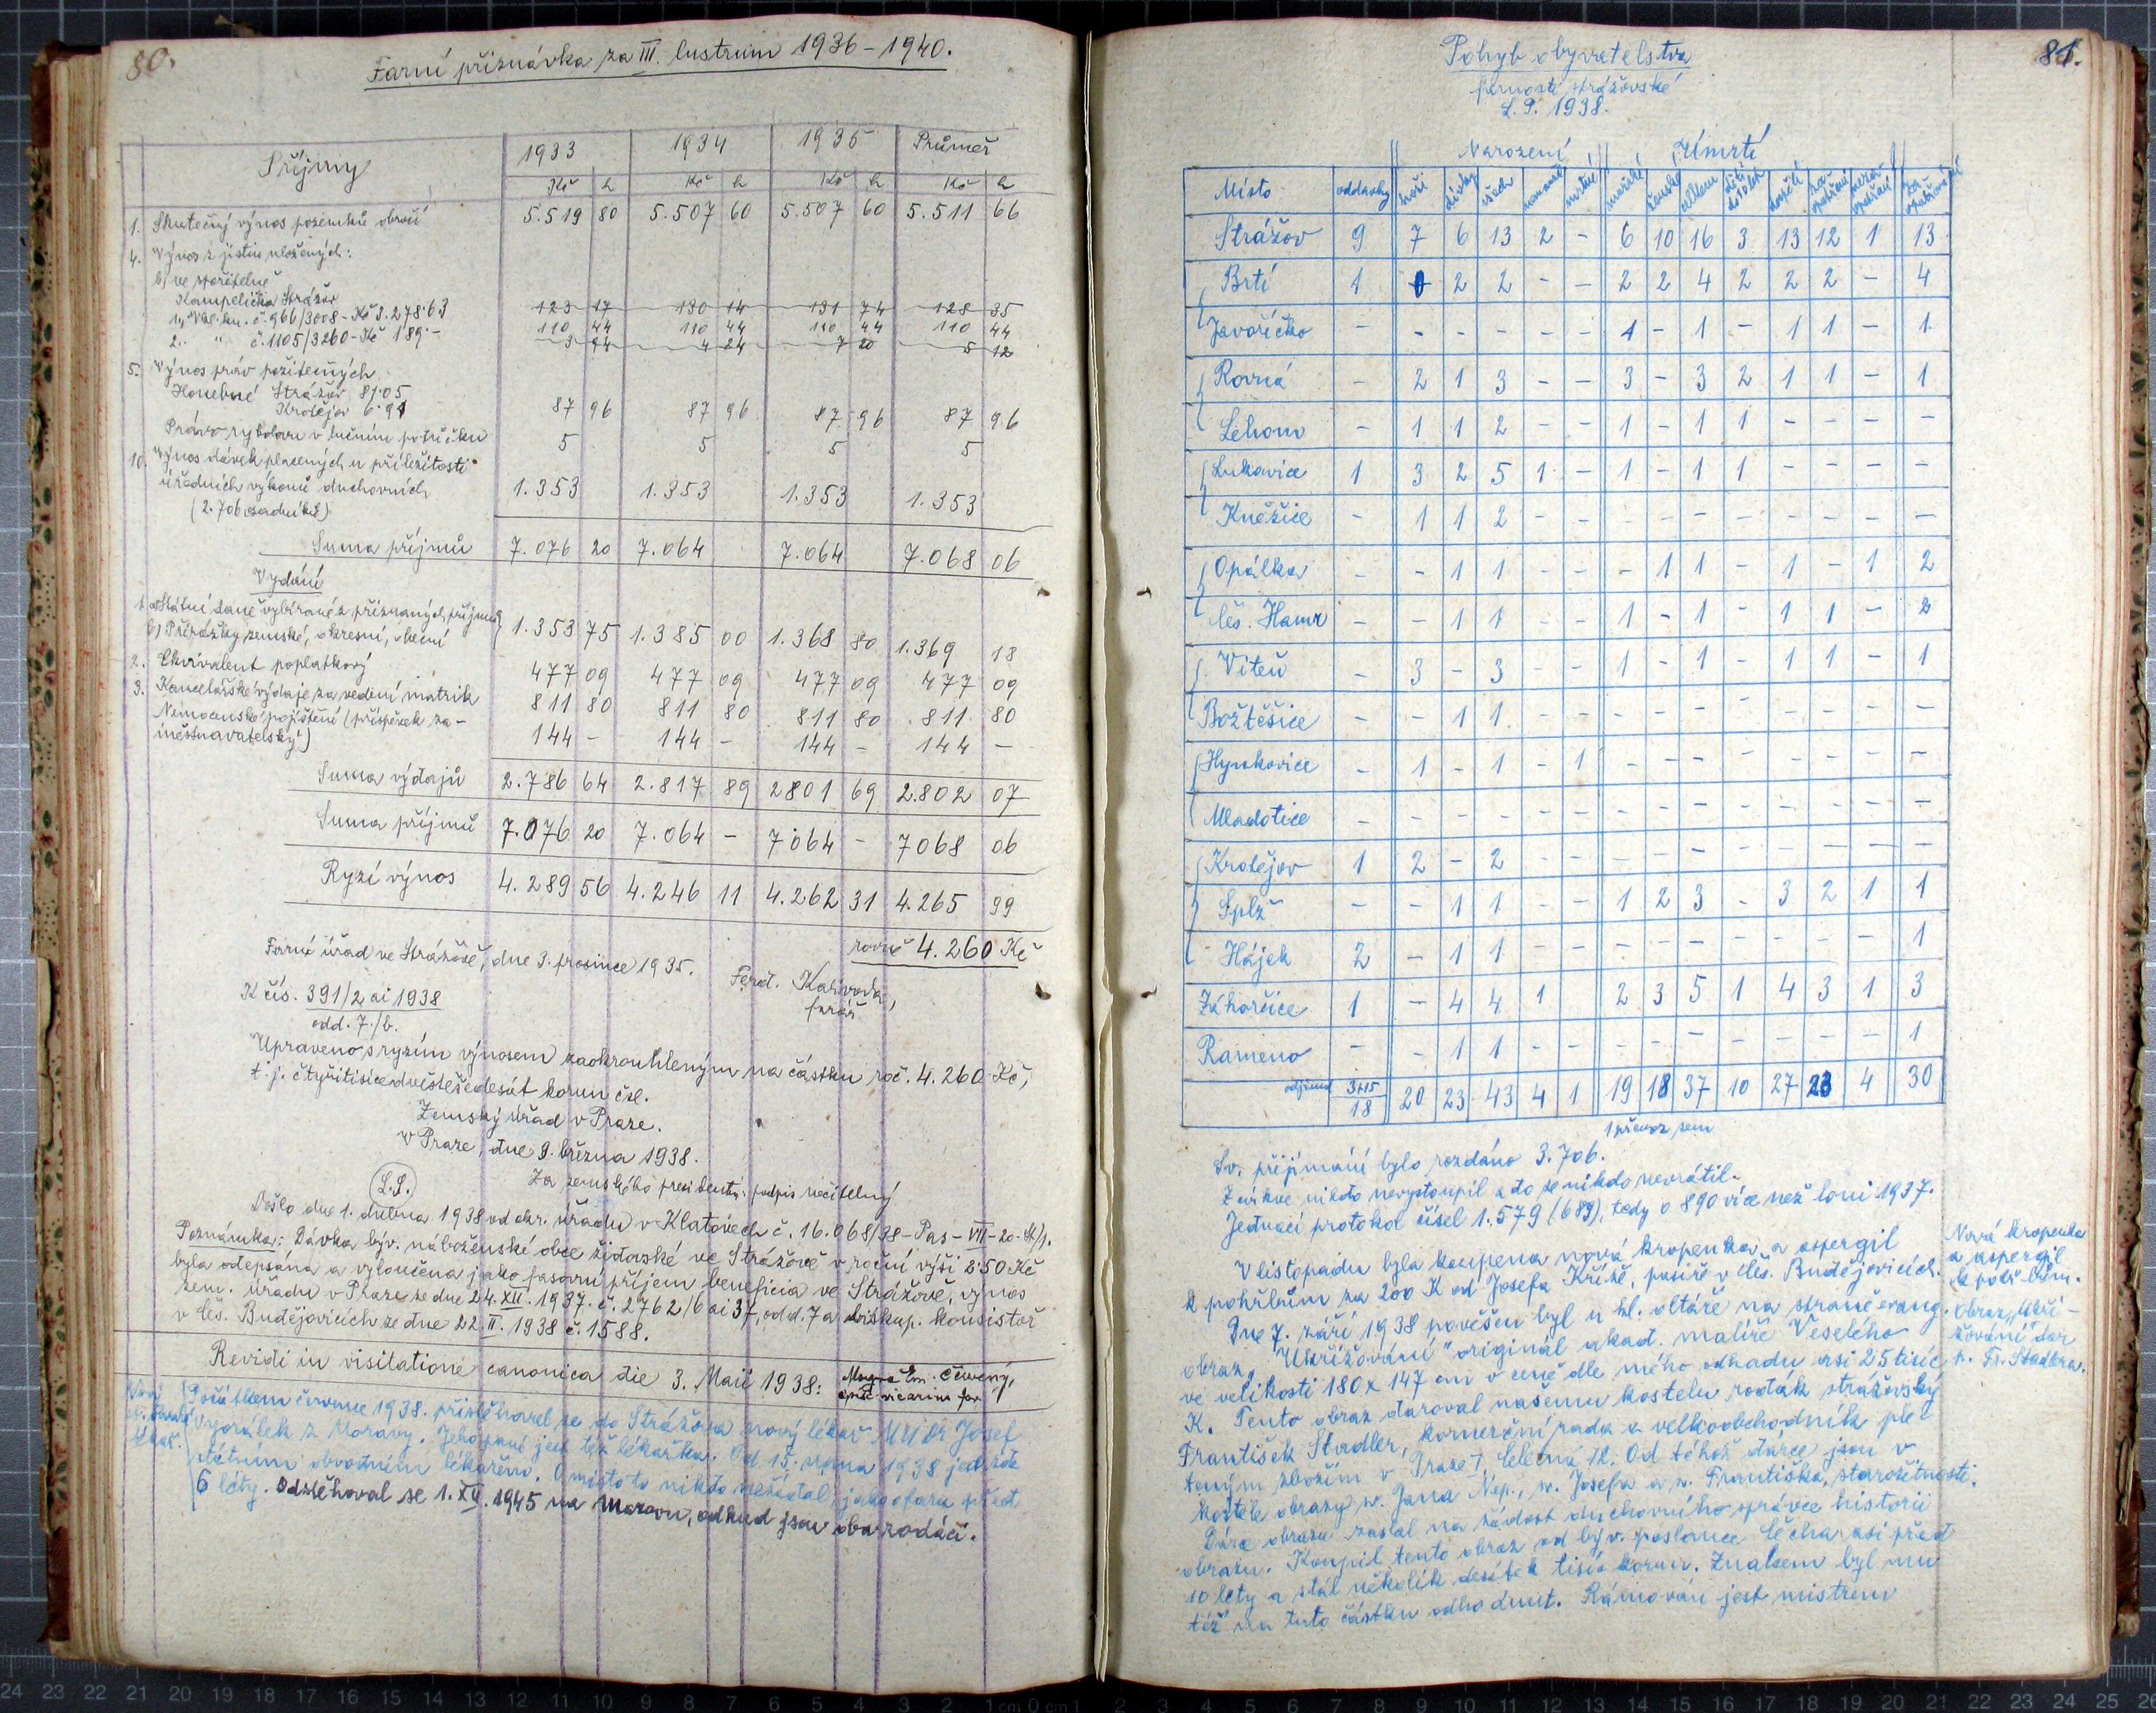 80.
Farní přiznávka za III. lustrum 1936 – 1940.
Příjmy 1933 1934 1935 Průměr
Kč h Kč h Kč h Kč h
1. Skutečný výnos pozemků obročí 5.519 80 5.507 60 5.507 60 5.511 66
4. Výnos z jistin uložených:
b) ve spořitelně
Kampelička Strážov 123 17 130 14 131 74 128 35
1., Vkl. kn. č. 966/3008 – Kč 3.278·63 110 44 110 44 110 44 110 44
2. " č. 1105/3260 – Kč 189·– 3 94 4 24 7 20 5 12
5. Výnos práv požitečných
Honebné Strážov 81·05
Krotějov 6·91 87 96 87 96 87 96 87 96
Právo rybolovu v lučním potůčku 5 5 5 5
10. Výnos dávek placených u příležitosti
úředních výkonů duchovních 1.353 1.353 1.353 1.353
(2.706 osadníků)
Suma příjmů 7.076 20 7.064 7.064 7.068 06
Vydání
1. a) Státní daně vybírané z přiznaných příjmů
b) Přirážky zemské, okresní, obecní 1.353 75 1.385 00 1.368 80 1.369 18
2. Ekvivalent poplatkový 477 09 477 09 477 09 477 09
3. Kancelářské výdaje za vedení matrik 811 80 811 80 811 80 811 80
Nemocenské pojištění (příspěvek za-
městnavatelský) 144 – 144 – 144 – 144 –
Suma výdajů 2.786 64 2.817 89 2801 69 2.802 07
Suma příjmů 7.076 20 7.064 – 7064 – 7068 06
Ryzí výnos 4.289 56 4.246 11 4.262 31 4.265 99
rovně 4.260 Kč
Farní úřad ve Strážově, dne 3. prosince 1935.
Ferd. Kalivoda,
farář
K čís. 391/2 ai 1938
odd. 7./b.
Upraveno s ryzím výnosem zaokrouhleným na částku roč. 4.260 Kč,
t. j. čtyřitisícedvěstěšedesát korun čsl.
Zemský úřad v Praze.
V Praze, dne 9. března 1938.
L.S. Za zemského presidenta: podpis nečitelný
Došlo dne 1. dubna 1938 od okr. úřadu v Klatovech č. 16.068/38 – Pas – VII – 20 – St/1.
Poznámka: Dávka býv. náboženské obce židovské ve Strážově v roční výši 2·50 Kč
byla odepsána a vyloučena jako fasovní příjem beneficia ve Strážově, výnos
zem. úřadu v Praze ze dne 24. XII. 1937. č. 2762/6 ai 37, odd. 7 a biskup. konsistoř
v Čes. Budějovicích ze dne 22. II. 1938 č. 1588.
Revidi in visitatione canonica die 3. Maii 1938: Em. Červený,
vicarius for
Počátkem června 1938. přistěhoval se do Strážova nový lékař MUDr Josef
Vyorálek z Moravy. Jeho paní jest též lékařka. Od 15. srpna 1938 jest zde
státním obvodním lékařem. O místo to nikdo nežádal, jako o faru před
6 léty. Odstěhoval se 1. XII. 1945 na Moravu, odkud jsou oba rodáci.
81.
Pohyb obyvatelstva
farnosti strážovské
L. P. 1938.
Narození Úmrtí
Místo oddavky hoši dívky všech nemanž. mrtvé mužské ženské celkem děti do 10 let dospělí zaopatření nezaopatření
Strážov 9 7 6 13 2 – 6 10 16 3 13 12 1 13
Brtí 1 0 2 2 – – 2 2 4 2 2 2 – 4
Javoříčko – – – – – – 1 – 1 – 1 1 – 1
Rovná – 2 1 3 – – 3 – 3 2 1 1 – 1
Lehom – 1 1 2 – – 1 – 1 1 – – – –
Lukavice 1 3 2 5 1 – 1 – 1 1 – – – –
Kněžice – 1 1 2 – – – – – – – – – –
Opálka – – 1 1 – – – 1 1 – 1 – 1 2
Čes. Hamr – – 1 1 – – 1 – 1 – 1 1 – 2
Viteň – 3 – 3 – – 1 – 1 – 1 1 – 1
Božtěšice – – 1 1 – – – – – – – – – –
Hynkovice – 1 – 1 – 1 – – – – – – – –
Mladotice – – – – – – – – – – – – – –
Krotějov 1 2 – 2 – – – – – – – – – –
Splž – – 1 1 – – 1 2 3 – 3 2 1 1
Hájek 2 – 1 1 – – – – – – – – – 1
Záhorčice 1 – 4 4 1 2 3 5 1 4 3 1 3
Rameno – – 1 1 – – – – – – – – – 1
odjinud 3+15
18 20 23 43 4 1 19 18 37 10 27 23 4 30
1 převoz sem
Sv. přijímání bylo rozdáno 3.706.
Z církve nikdo nevystoupil a do ze nikdo nevrátil.
Jednací protokol čísel 1.579 (689), tedy o 890 více než loni 1937.
V listopadu byla koupena nová kropenka a aspergil
k pohřbům za 200 K od Josefa Kříže, pasíře v Čes. Budějovicích.
Nová kropenka
a aspergil
k pohřbům.
Dne 7. září 1938 pověšen byl u hl. oltáře na straně evang.
obraz „Ukřižování“ originál akad. malíře Veselého
ve velikosti 180 x 147 cm v ceně dle mého odhadu asi 25 tisíc
K. Tento obraz daroval našemu kostelu rodák strážovský
František Stadler, komerční rada a velkoobchodník ple-
teným zbožím v Praze I, Celetná 12. Od téhož dárce jsou v
kostele obrazy sv. Jana Nep., sv. Josefa a sv. Františka, starožitnosti.
Obraz „Ukři-
žování“ dar
p. Fr. Stadlera.
Dárce obrazu zaslal na žádost duchovního správce historii
obrazu. Koupil tento obraz od býv. poslance Čecha asi před
10 lety a stál několik desítek tisíc korun. Znalcem byl mu
též na tuto částku odhodnut. Rámován jest mistrem